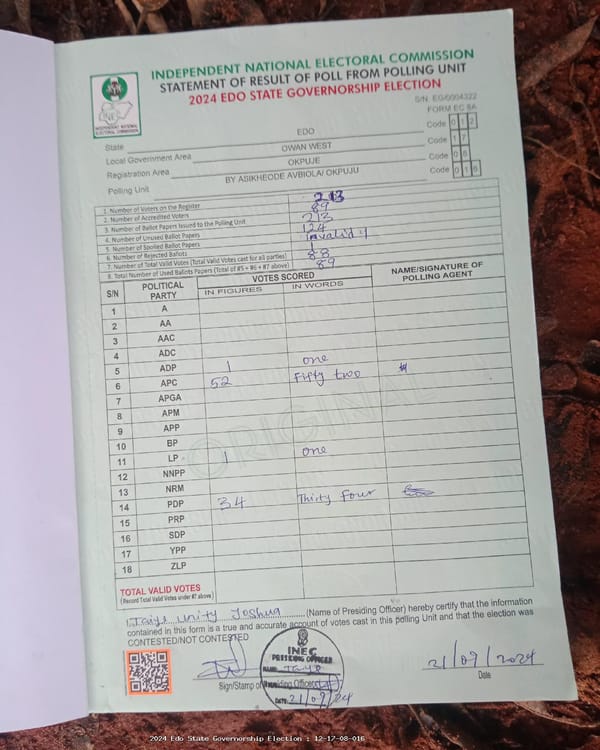 INDEPENDENT NATIONAL ELECTORAL COMMISSION
STATEMENT OF RESULT OF POLL FROM POLLING UNIT
2024 EDO STATE GOVERNORSHIP ELECTION
S/N. EG/0004322
FORM EC 8A
INDEPENDENT NATIONAL ELECTORAL COMMISSION
State EDO Code 012
Local Government Area OWAN WEST Code 17
Registration Area OKPUJE Code 08
Polling Unit BY ASIKHEODE AVBIOLA/ OKPUJU Code 016
1. Number of Voters on the Register 213
2. Number of Accredited Voters 89
3. Number of Ballot Papers Issued to the Polling Unit 213
4. Number of Unused Ballot Papers 124
5. Number of Spoiled Ballot Papers Invalid
6. Number of Rejected Ballots 1
7. Number of Total Valid Votes (Total Valid Votes cast for all parties) 88
8. Total Number of Used Ballots Papers (Total of #5 + #6 + #7 above) 89
S/N POLITICAL PARTY VOTES SCORED NAME/SIGNATURE OF POLLING AGENT
IN FIGURES IN WORDS
1 A
2 AA
3 AAC
4 ADC
5 ADP 1 one
6 APC 52 Fifty two
7 APGA
8 APM
9 APP
10 BP
11 LP 1 one
12 NNPP
13 NRM
14 PDP 34 Thirty Four
15 PRP
16 SDP
17 YPP
18 ZLP
ORIGINAL
TOTAL VALID VOTES
(Record Total Valid Votes under #7 above)
I Taiye Unity Joshua (Name of Presiding Officer) hereby certify that the information
contained in this form is a true and accurate account of votes cast in this polling Unit and that the election was
CONTESTED/NOT CONTESTED
INEC
PRESIDING OFFICER
NAME: Taiye
Sign/Stamp of Presiding Officer
DATE: 21/09/24
21/09/2024
Date
2024 Edo State Governorship Election : 12-17-08-016